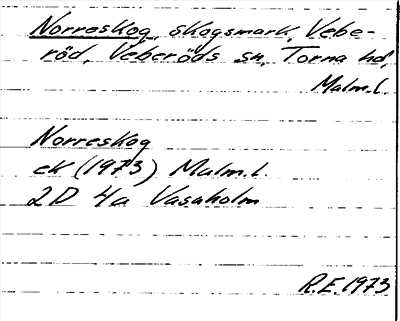 Norreskog, skogsmark, Vebe-
röd, Veberöds sn, Torna hd,
Malm.l.
Norreskog
ek (1973) Malm.l.
2D 4a Vasaholm
R.E. 1973